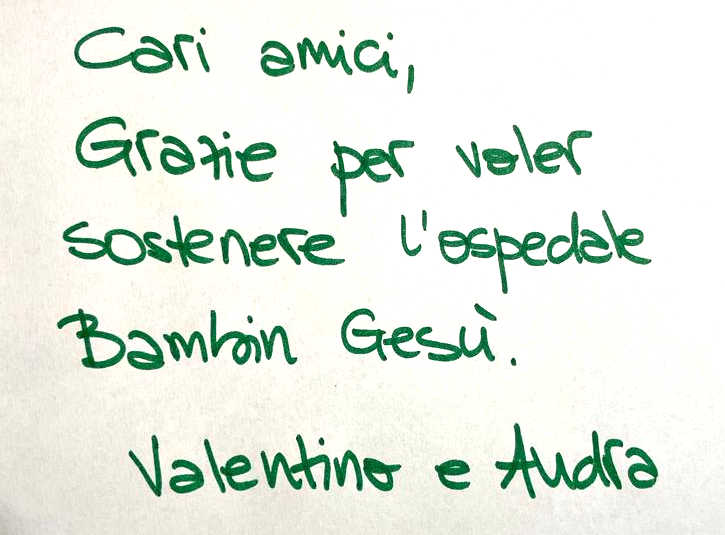 Cari amici,
Grazie per voler
sostenere l'ospedale
Bambin Gesù.
Valentino e Audra